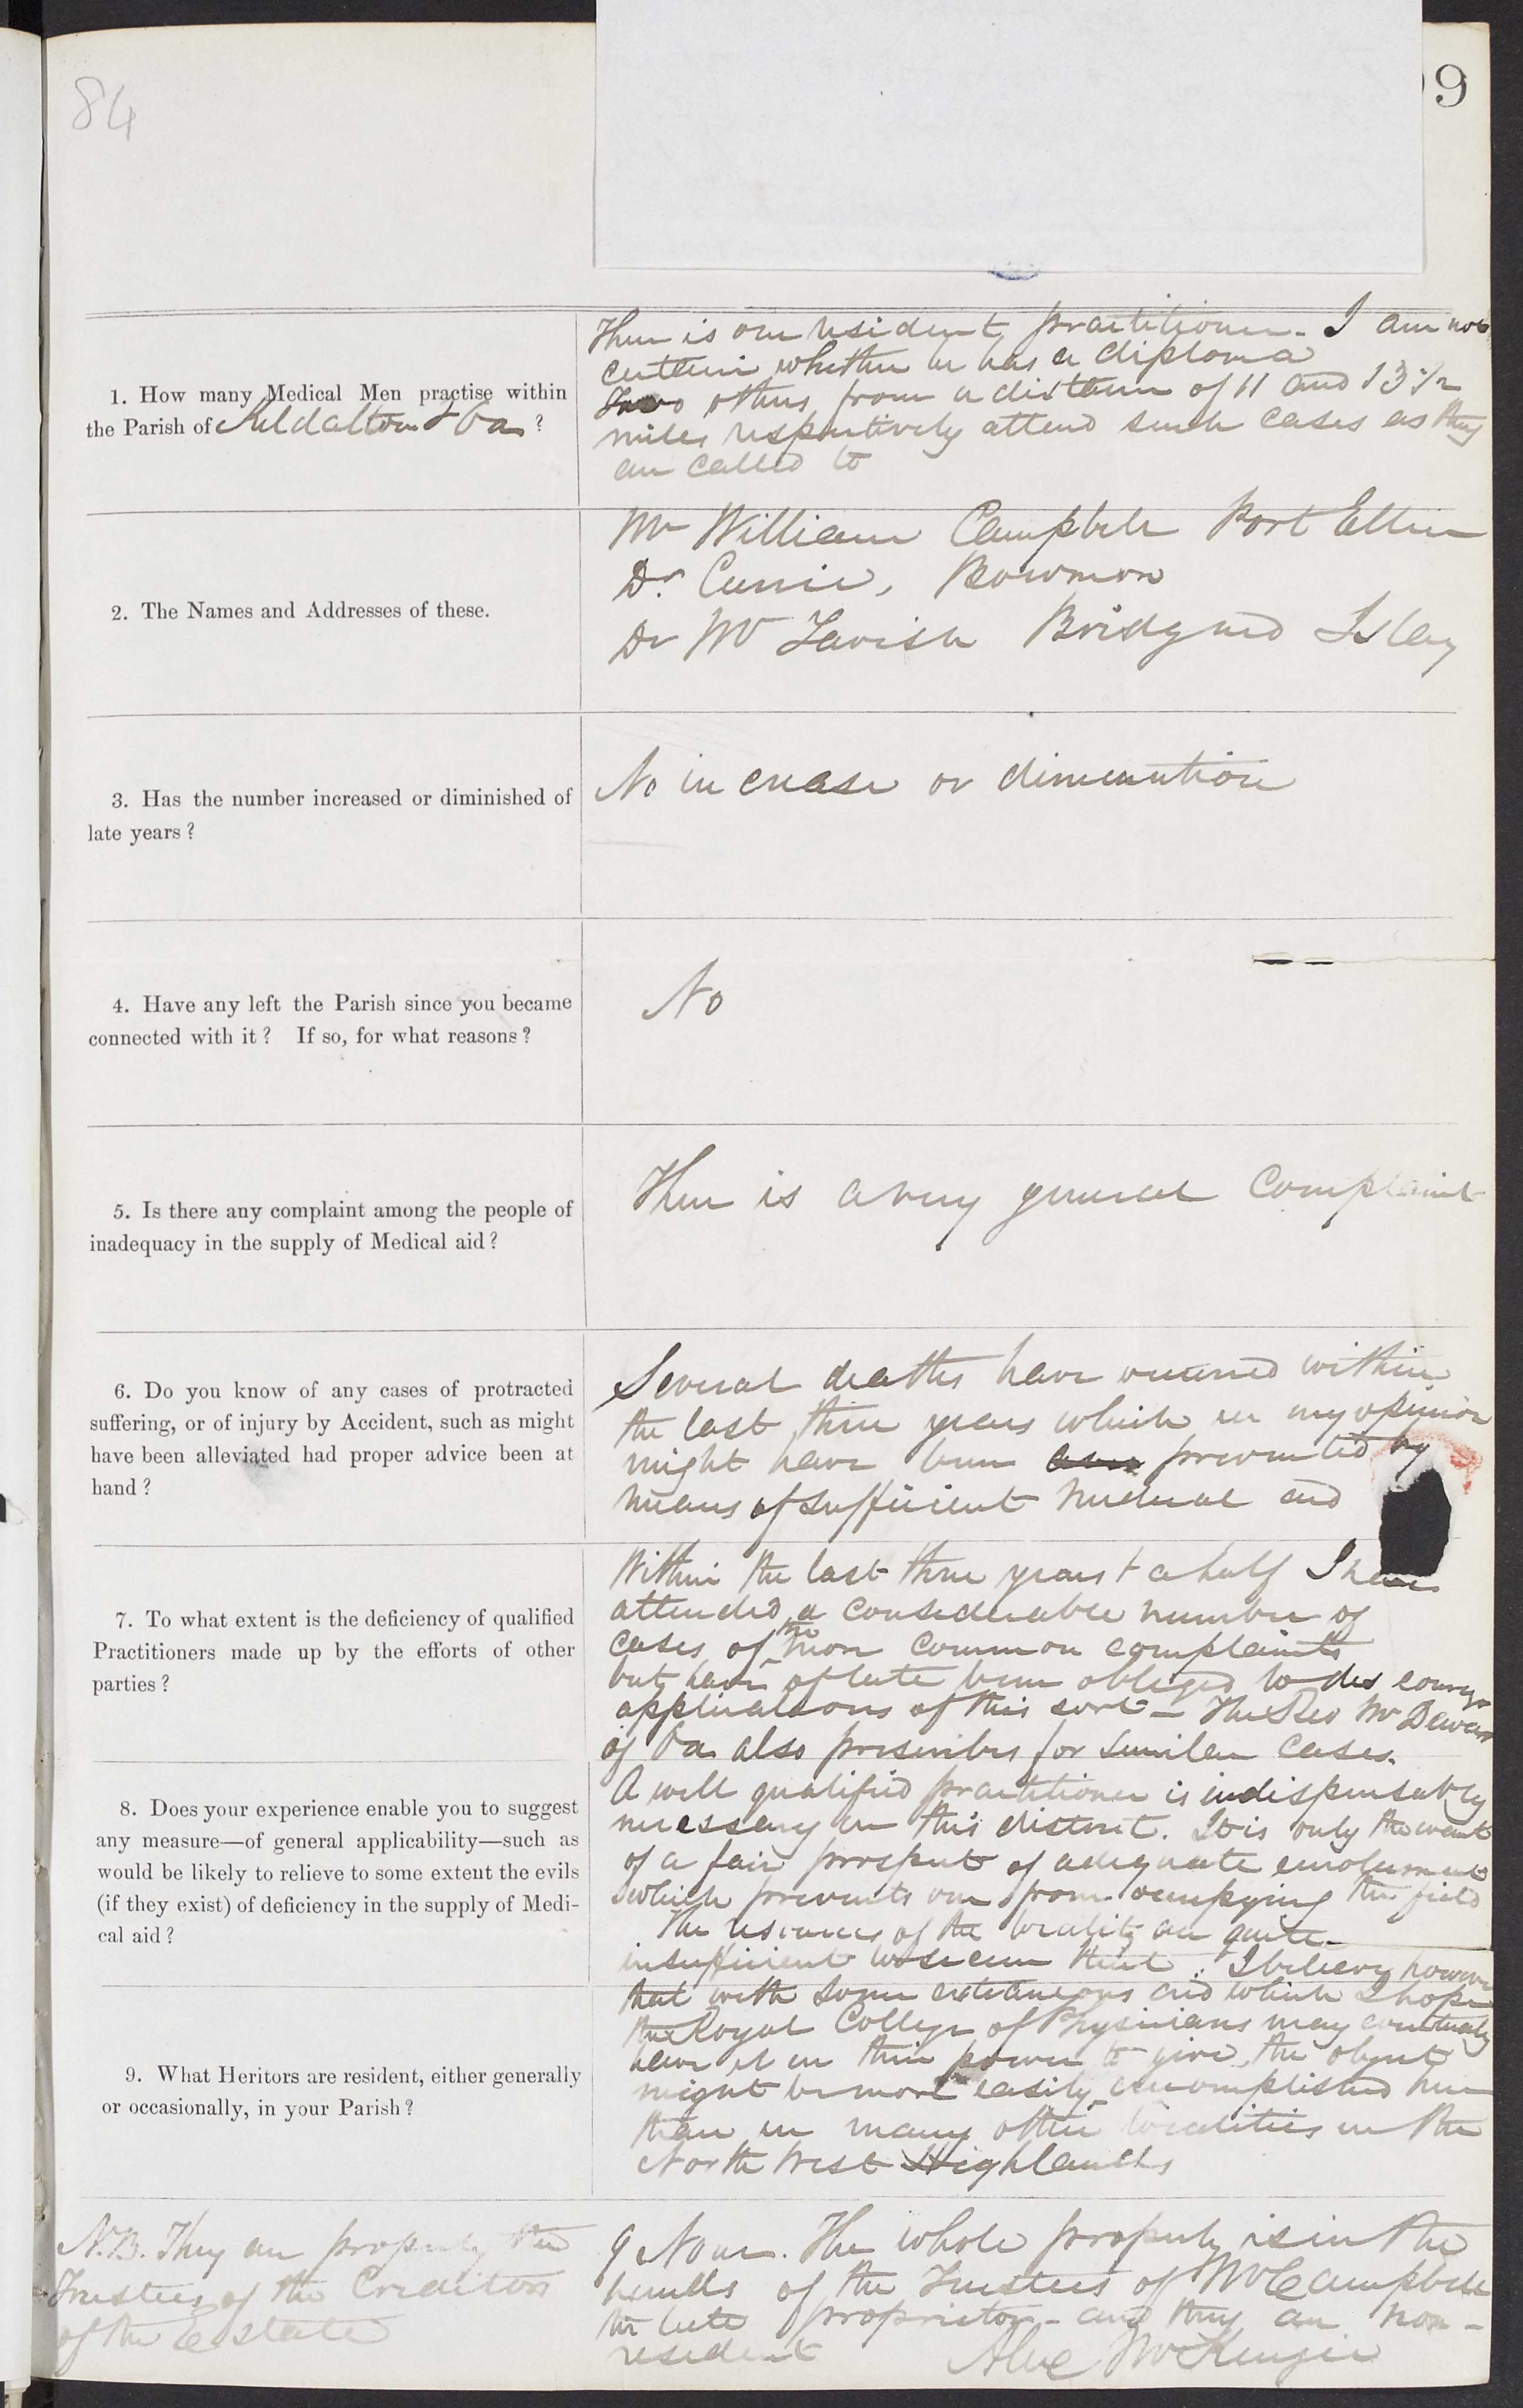 84
9
1. How many Medical Men practise within
the Parish of Kildalton & Oa ?
There is one resident practitioner. I am not
certain whether he has a diploma
Two others from a distance of 11 and 13 1/2
miles respectively attend such cases as they
are called to
2. The Names and Addresses of these.
Mr William Campbell Port Ellen
Dr. Currie, Bowmore
Dr McTavish Bridgend Islay
3. Has the number increased or diminished of
late years?
No increase or diminution
4. Have any left the Parish since you became
connected with it? If so, for what reasons?
No
5. Is there any complaint among the people of
inadequacy in the supply of Medical aid?
There is a very general complaint
6. Do you know of any cases of protracted
suffering, or of injury by Accident, such as might
have been alleviated had proper advice been at
hand?
Several deaths have occurred within
the last three years which in my opinion
might have been prevented by
means of sufficient medical aid
7. To what extent is the deficiency of qualified
Practitioners made up by the efforts of other
parties?
Within the last three years & a half I have
attended a considerable number of
cases of the more common complaints
but have of late been obliged to discourage
applications of this sort – The Rev Mr Dewar
of Oa also prescribes for similar cases.
8. Does your experience enable you to suggest
any measure—of general applicability—such as
would be likely to relieve to some extent the evils
(if they exist) of deficiency in the supply of Medi-
cal aid?
A well qualified practitioner is indispensably
necessary in this district. It is only the want
of a fair prospect of adequate emolument
which prevents one from occupying the field
The resources of the locality are quite
insufficient to secure that. I believe however
that with some extraneous aid which I hope
the Royal College of Physicians may eventually
have it in their power to give, the object
might be more easily accomplished here
than in many other localities in the
North West Highlands
9. What Heritors are resident, either generally
or occasionally, in your Parish?
9 None. The whole property is in the
hands of the Trustees of Mr Campbell
the late proprietor – and they are non-
resident
Alex McKenzie
N.B. They are properly the
Trustees of the Creditors
of the Estate